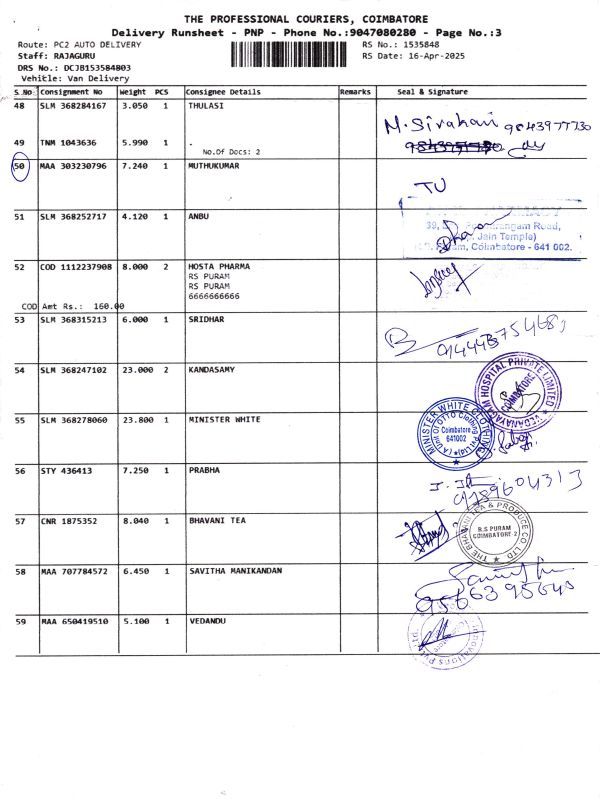 THE PROFESSIONAL COURIERS, COIMBATORE
Delivery Runsheet - PNP - Phone No.:9047080280 - Page No.:3
Route: PC2 AUTO DELIVERY RS No.: 1535848
Staff: RAJAGURU RS Date: 16-Apr-2025
DRS No.: DCJB153584803
Vehitle: Van Delivery
S.No Consignment No Weight PCS Consignee Details Remarks Seal & Signature
48 SLM 368284167 3.050 1 THULASI
M. Sivahari 9843977730
49 TNM 1043636 5.990 1 .
No.Of Docs: 2
50 MAA 303230796 7.240 1 MUTHUKUMAR
TU
51 SLM 368252717 4.120 1 ANBU
Road,
Jain Temple)
Coimbatore - 641 002.
52 COD 1112237908 8.000 2 HOSTA PHARMA
RS PURAM
RS PURAM
6666666666
COD Amt Rs.: 160.00
53 SLM 368315213 6.000 1 SRIDHAR
54 SLM 368247102 23.000 2 KANDASAMY
VEDANAYAGAM HOSPITAL PRIVATE LIMITED
COIMBATORE
55 SLM 368278060 23.800 1 MINISTER WHITE
MINISTER WHITE CLOTHING
(A Unit Of OTTO Clothing Pvt Ltd)
Coimbatore
641002
56 STY 436413 7.250 1 PRABHA
9789604313
57 CNR 1875352 8.040 1 BHAVANI TEA
THE BHAVANI TEA & PRODUCE CO. LTD
R.S PURAM
COIMBATORE-2
58 MAA 707784572 6.450 1 SAVITHA MANIKANDAN
59 MAA 650419510 5.100 1 VEDANDU